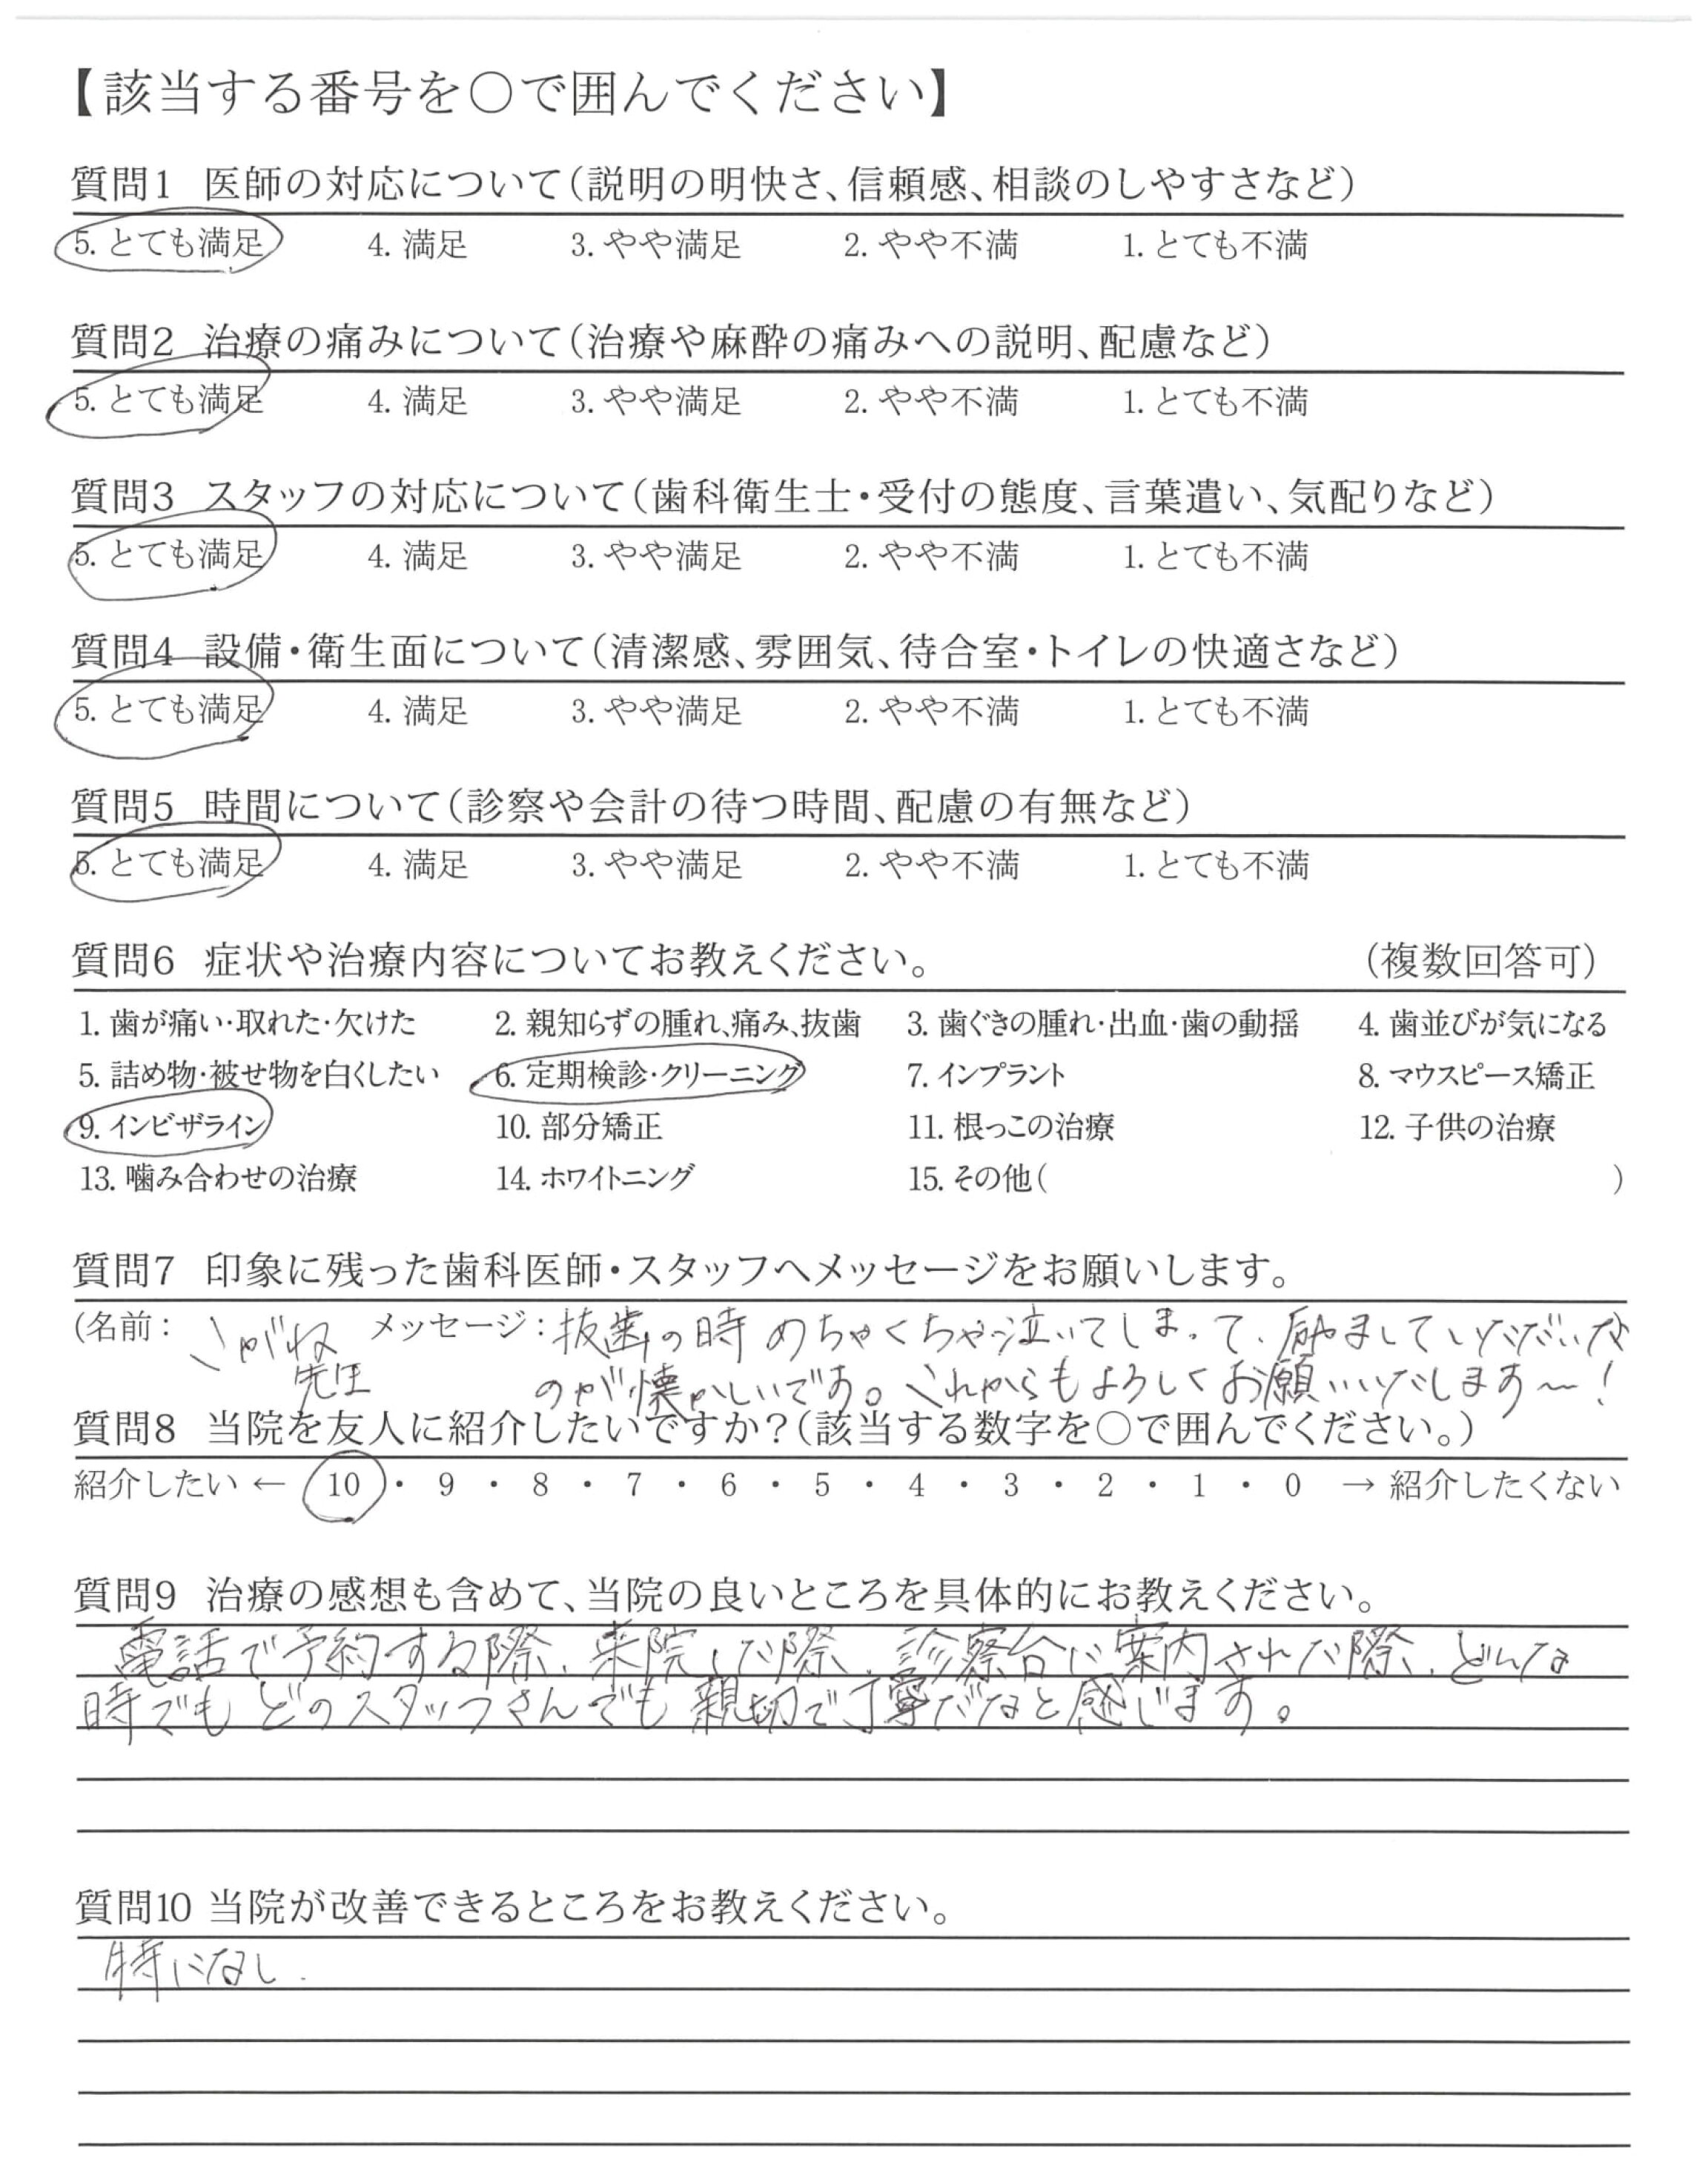 【該当する番号を○で囲んでください】
質問1 医師の対応について(説明の明快さ、信頼感、相談のしやすさなど)
5. とても満足 4. 満足 3. やや満足 2. やや不満 1. とても不満
質問2 治療の痛みについて(治療や麻酔の痛みへの説明、配慮など)
5. とても満足 4. 満足 3. やや満足 2. やや不満 1. とても不満
質問3 スタッフの対応について(歯科衛生士・受付の態度、言葉遣い、気配りなど)
5. とても満足 4. 満足 3. やや満足 2. やや不満 1. とても不満
質問4 設備・衛生面について(清潔感、雰囲気、待合室・トイレの快適さなど)
5. とても満足 4. 満足 3. やや満足 2. やや不満 1. とても不満
質問5 時間について(診察や会計の待つ時間、配慮の有無など)
5. とても満足 4. 満足 3. やや満足 2. やや不満 1. とても不満
質問6 症状や治療内容についてお教えください。 (複数回答可)
1. 歯が痛い・取れた・欠けた 2. 親知らずの腫れ、痛み、抜歯 3. 歯ぐきの腫れ・出血・歯の動揺 4. 歯並びが気になる
5. 詰め物・被せ物を白くしたい 6. 定期検診・クリーニング 7. インプラント 8. マウスピース矯正
9. インビザライン 10. 部分矯正 11. 根っこの治療 12. 子供の治療
13. 噛み合わせの治療 14. ホワイトニング 15. その他( )
質問7 印象に残った歯科医師・スタッフへメッセージをお願いします。
(名前: こがね メッセージ: 抜歯の時めちゃくちゃ泣いてしまって、励ましていただいた
先生 のが懐かしいです。これからもよろしくお願いいたします〜!
質問8 当院を友人に紹介したいですか?(該当する数字を○で囲んでください。)
紹介したい ← 10 ・ 9 ・ 8 ・ 7 ・ 6 ・ 5 ・ 4 ・ 3 ・ 2 ・ 1 ・ 0 → 紹介したくない
質問9 治療の感想も含めて、当院の良いところを具体的にお教えください。
電話で予約する際、来院した際、診察台に案内された際、どんな
時でもどのスタッフさんでも親切で丁寧だなと感じます。
質問10 当院が改善できるところをお教えください。
特になし.